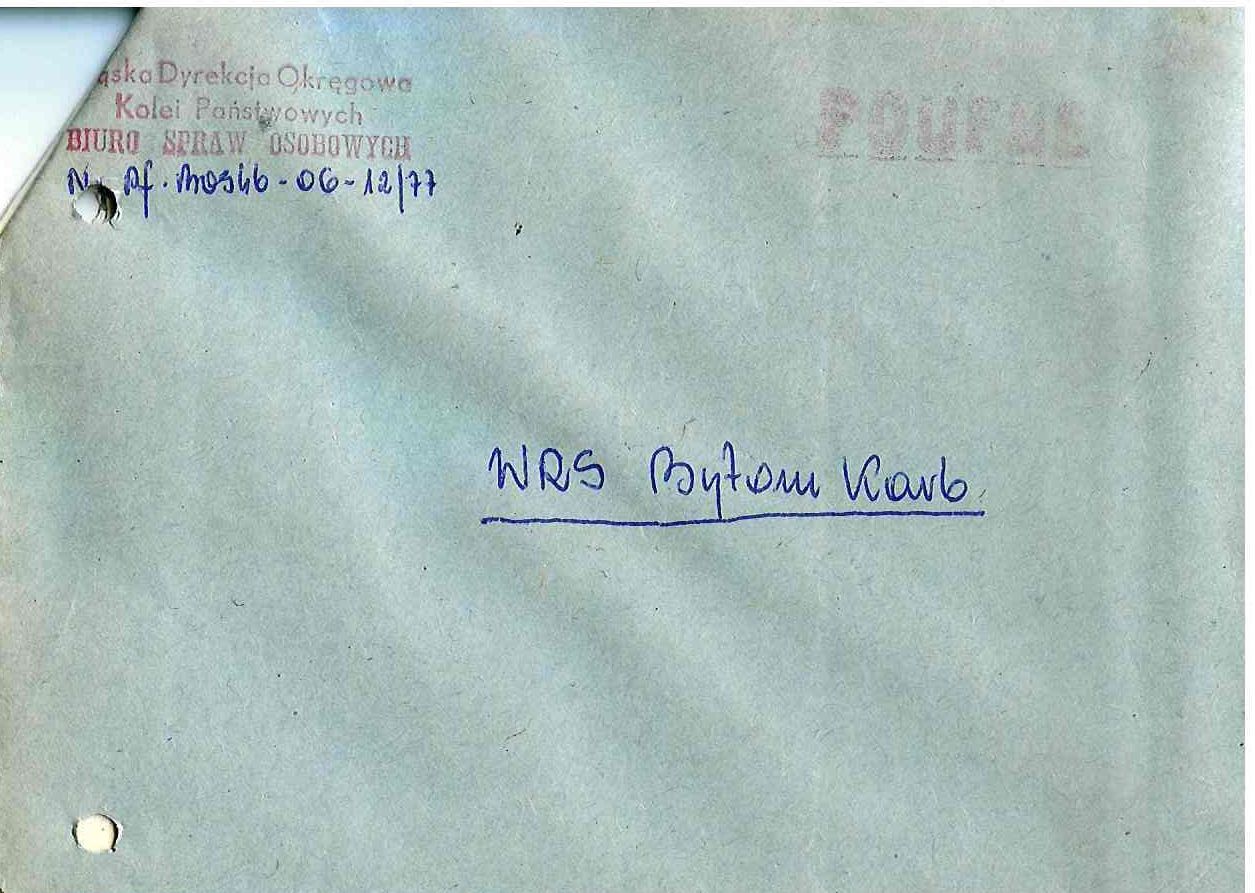 ąska Dyrekcja Okręgowa
Kolei Państwowych
BIURO SPRAW OSOBOWYCH
POUFNE
06-12/77
WRS Bytom Karb